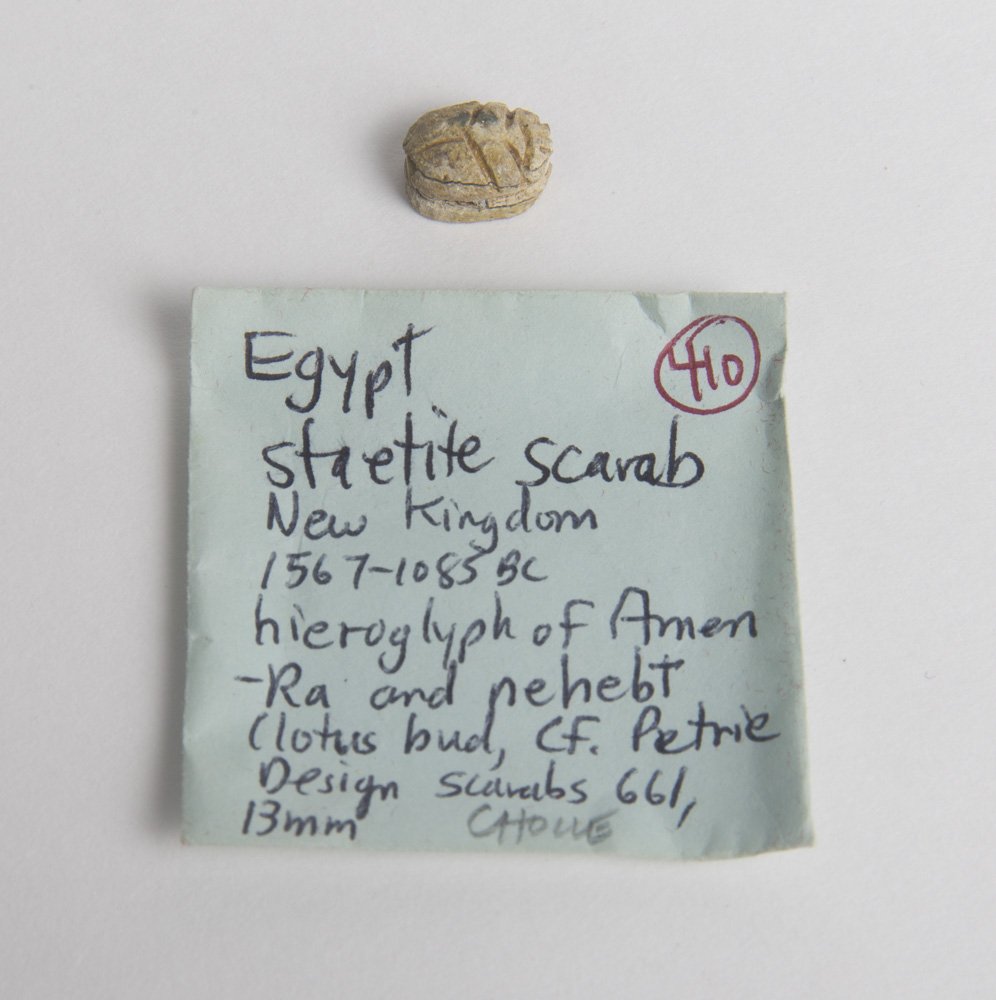 Egypt
410
staetite scarab
New Kingdom
1567-1085 BC
hieroglyph of Amen
-Ra and nehebt
(lotus bud, Cf. Petrie
Design scarabs 661,
13mm